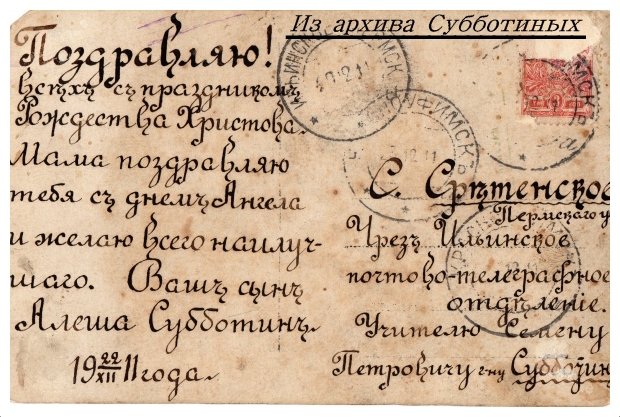 Из архива Субботиных
Поздравляю!
всѣхъ съ праздникомъ
Рождества Христова.
Мама поздравляю
тебя съ днемъ Ангела
и желаю всего наилуч-
шаго. Вашъ сынъ
Алеша Субботинъ.
19 22/XII 11 года.
С. Срѣтенское
Пермскаго у
Чрезъ Ильинское
почтово-телеграфное
отдѣленіе.
Учителю Семену
Петровичу г-ну Субботин